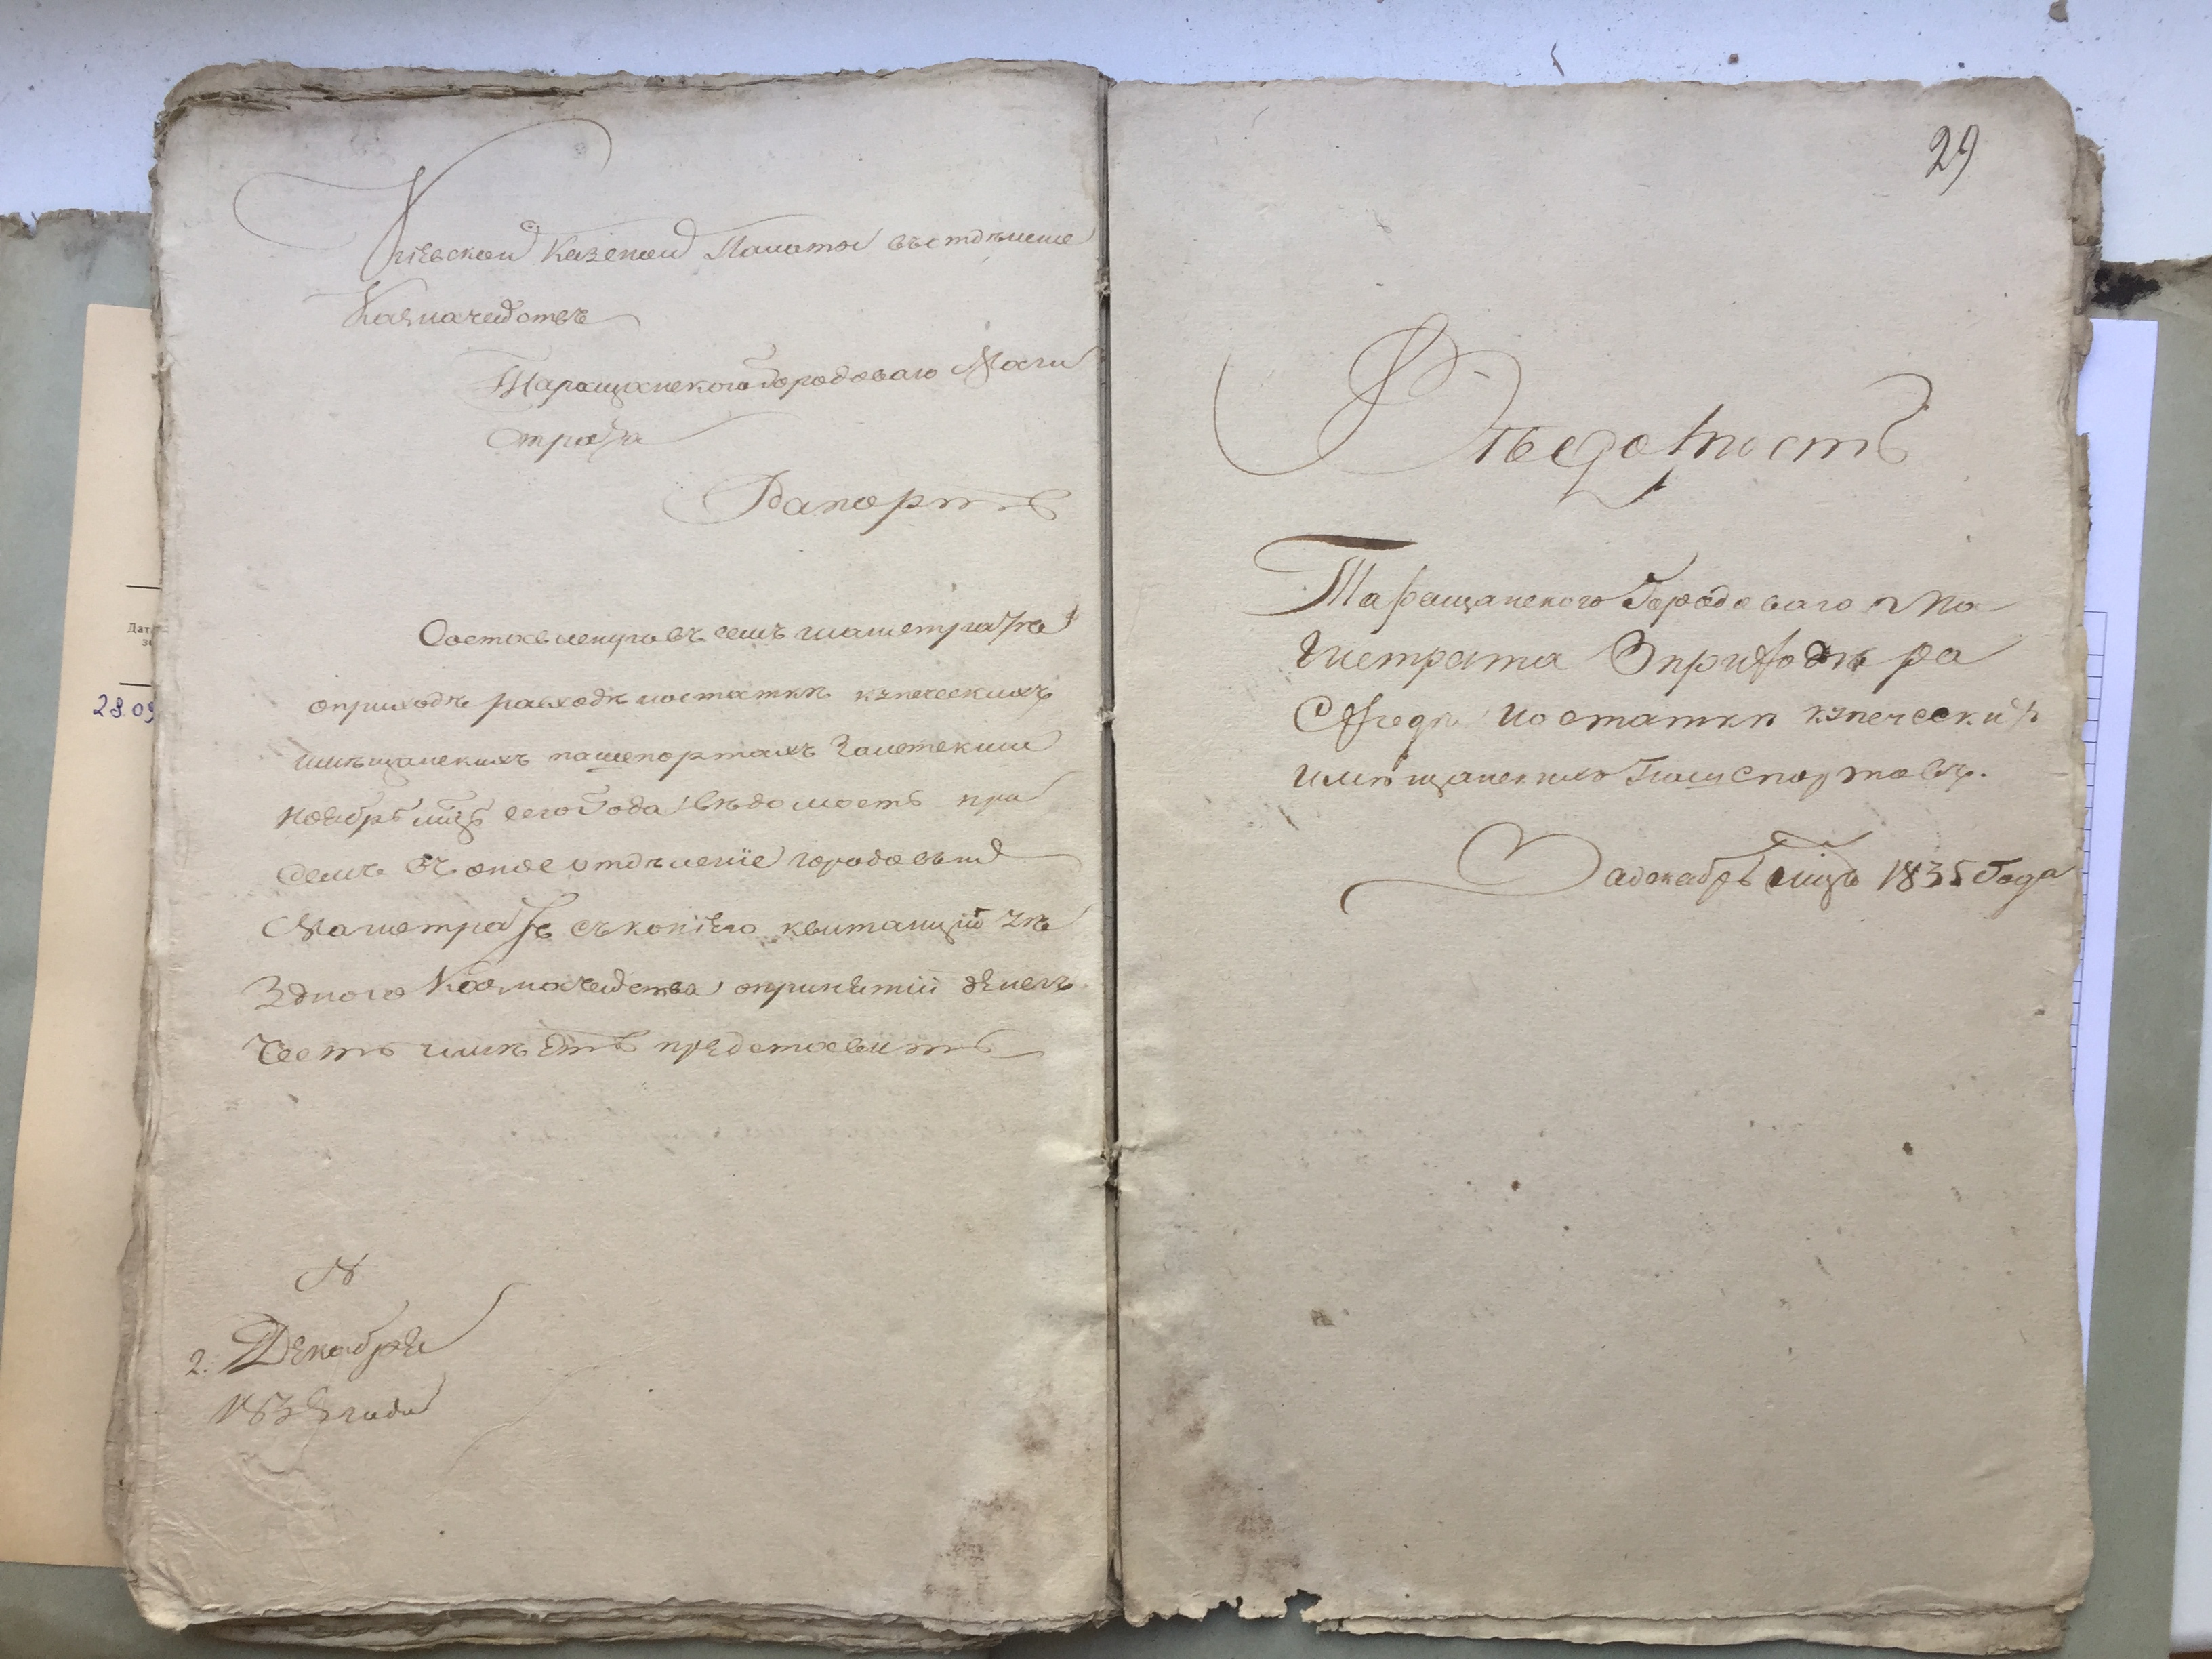 Кіевской Казеной Палаты въ отдѣление
Казначействъ
Таращанского Городоваго Маги
страта
Рапортъ
Составленную въ семъ магистратѣ
оприходѣ расходѣ иостаткѣ купеческихъ
имѣщанскихъ пашепортахъ Заистекши
ноябрь мцъ сего Года вѣдомость при
семъ въ оное отдѣленіе городовый
Магистратъ съ копіею квитанціи уѣ
Здного Казначейства опринятіи денегъ
Честь имѣетъ представить
N
2. Декабря
1835 года
29
Вѣдомость
Таращанского Городоваго Ма
гистрата Оприходѣ ра
сходѣ иостаткѣ купескихъ
имѣщанскихъ Пашепортовъ.
Задекабрь мцъ 1835 Года
Дат
28.09